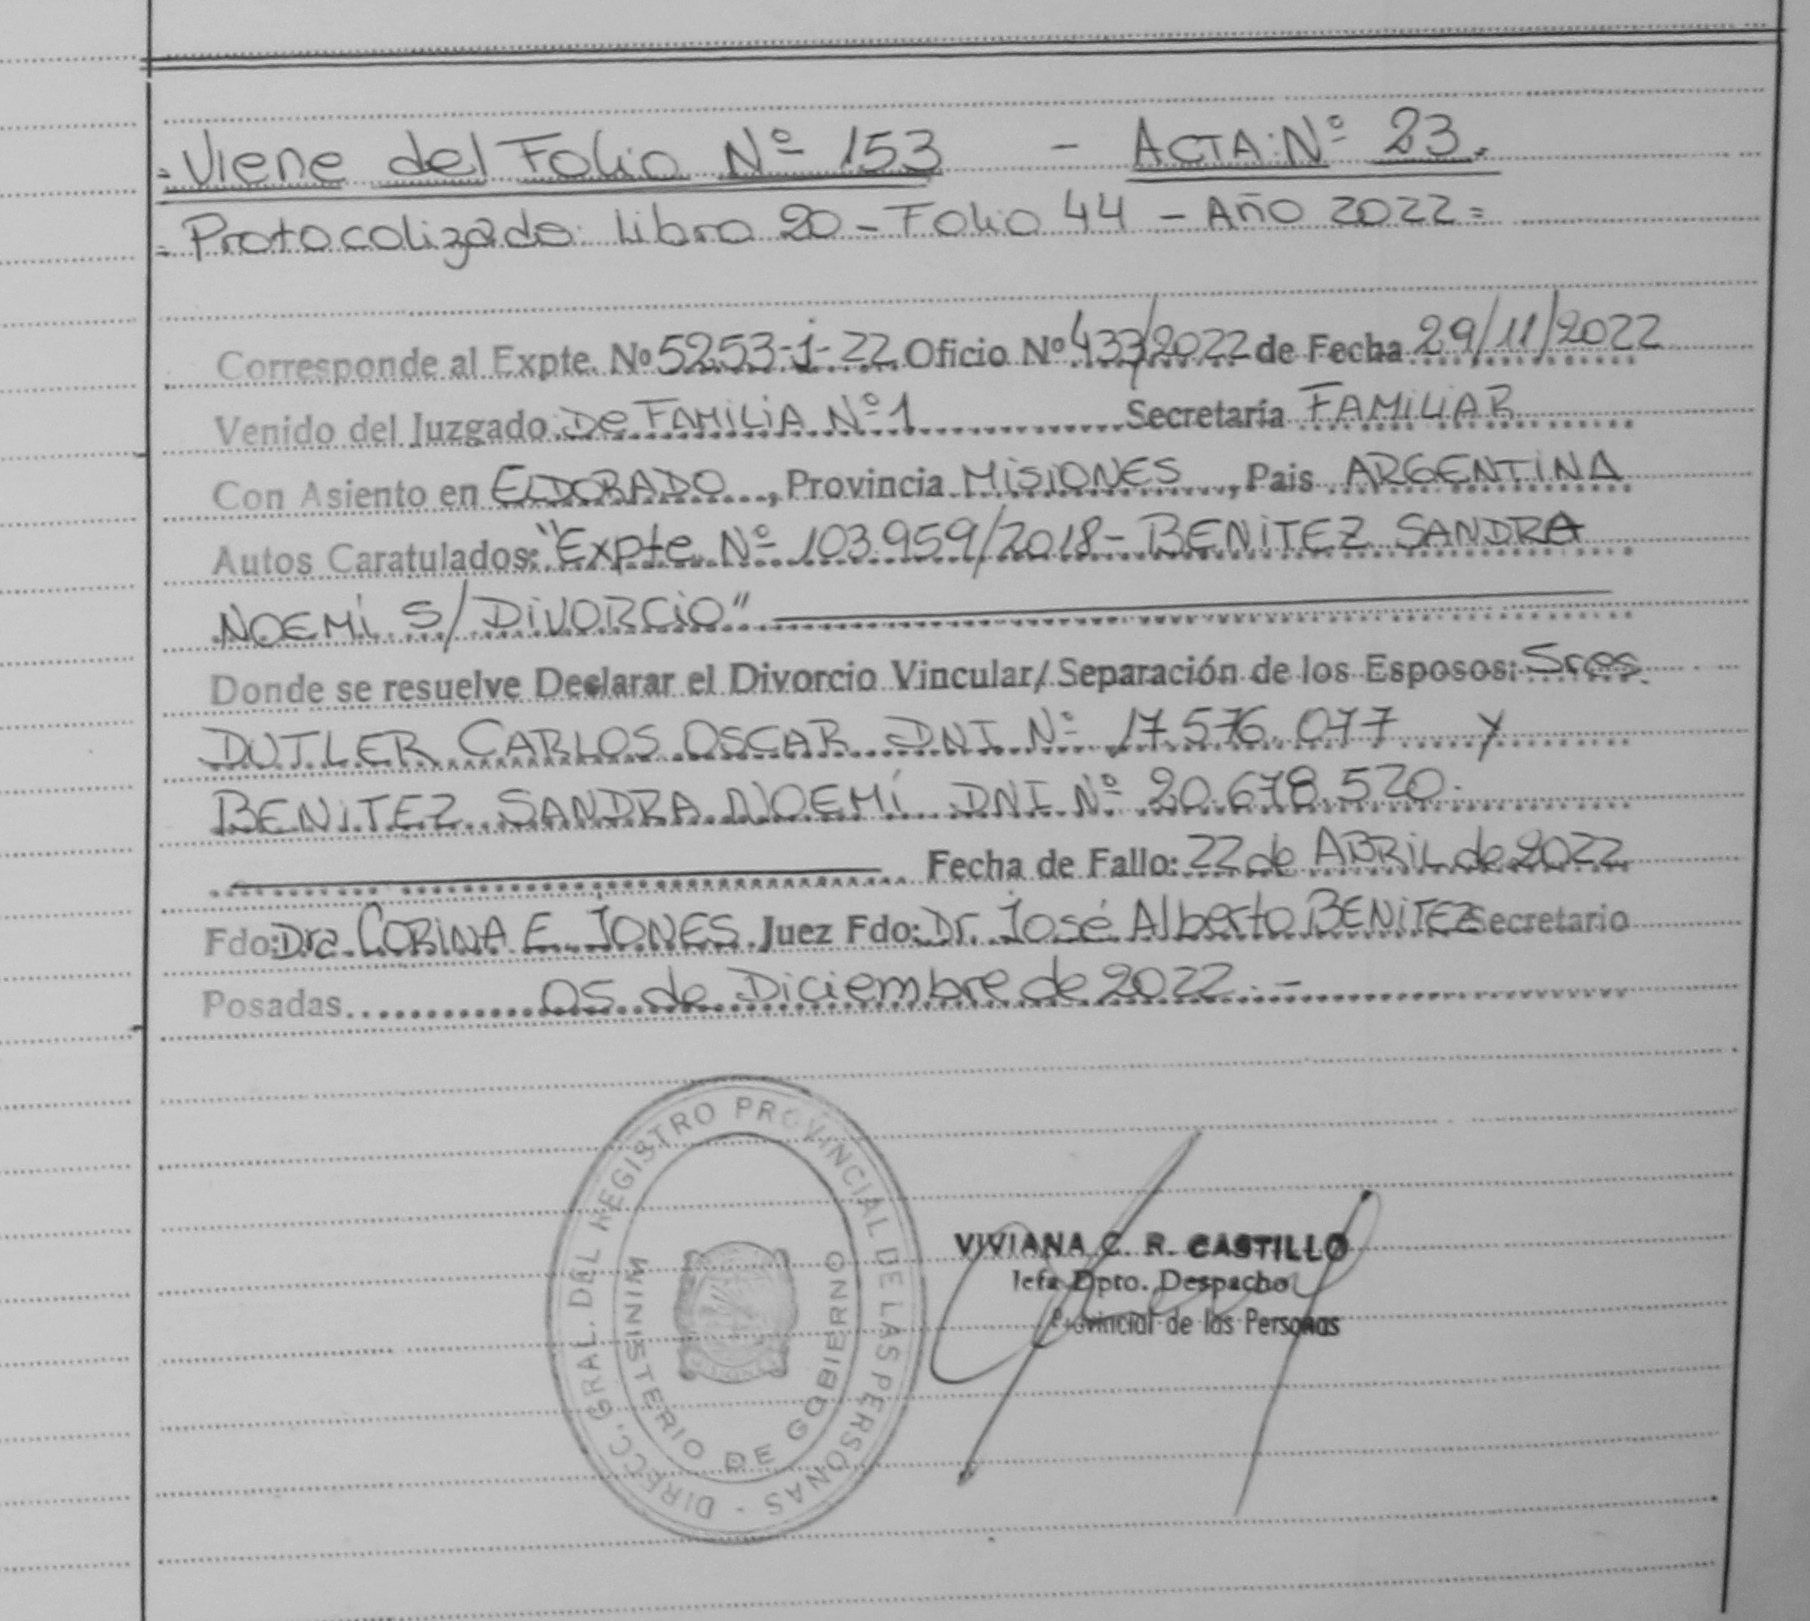 = Viene del Folio Nº 153 - ACTA: Nº 23.
= Protocolizado: Libro 20 - Folio 44 - Año 2022 =
Corresponde al Expte. Nº 5253-j-22 Oficio Nº 433/2022 de Fecha 29/11/2022
Venido del Juzgado De FAMILIA Nº 1 Secretaría FAMILIAR
Con Asiento en ELDORADO, Provincia MISIONES, Pais ARGENTINA
Autos Caratulados: "Expte Nº 103.959/2018 - BENITEZ SANDRA
NOEMÍ S/ DIVORCIO"
Donde se resuelve Declarar el Divorcio Vincular/ Separación de los Esposos: Sres.
DUTLER CARLOS OSCAR DNI Nº 17.576.077 y
BENITEZ SANDRA NOEMÍ DNI Nº 20.678.520.
Fecha de Fallo: 22 de ABRIL de 2022
Fdo: Dra. CORINA E. JONES Juez Fdo: Dr. José Alberto BENITEZ Secretario
Posadas 05 de Diciembre de 2022. -
DIRECC. GRAL. DEL REGISTRO PROVINCIAL DE LAS PERSONAS -
MINISTERIO DE GOBIERNO
VIVIANA C. R. CASTILLO
Jefa Dpto. Despacho
Provincial de las Personas